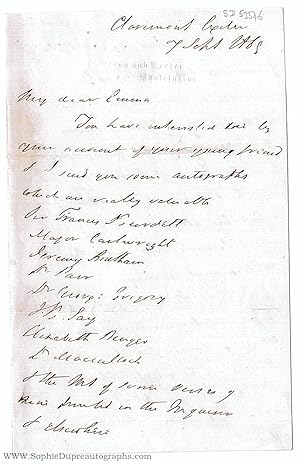 Claremont Exeter
SD 53576
7 Sept 1869
My dear Emma
You have interested me by
your account of your young friend
& I send you some autographs
which are really valuable
Sir Francis Burdett
Major Cartwright
Jeremy Bentham
Dr Parr
Dr
J B Say
Elizabeth Benger
Dr Macculloch
& the MS of some verses of
mine printed in the Inquirer
& elsewhere
www.SophieDupreautographs.com